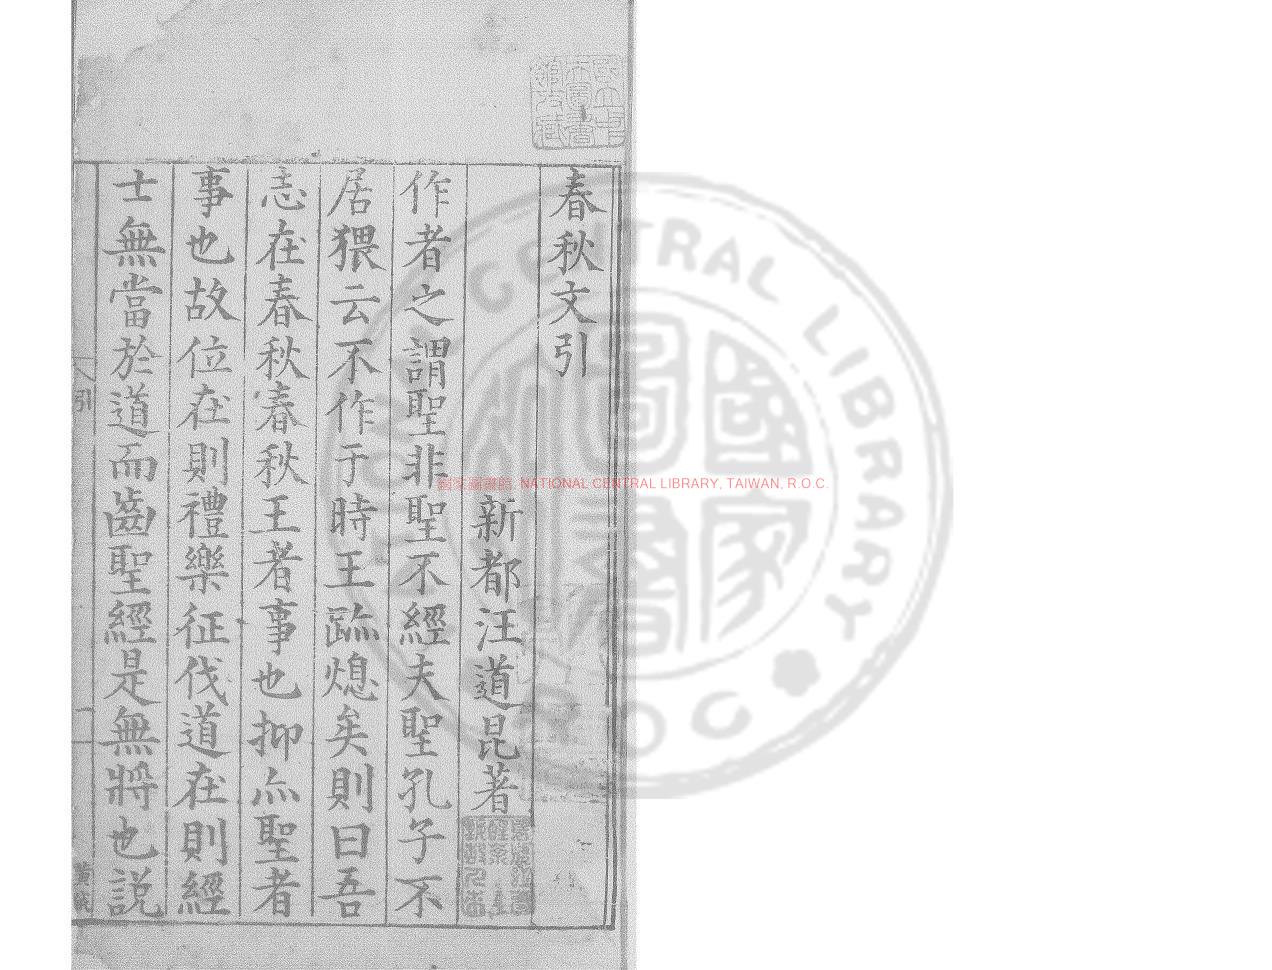 春秋文引
新都汪道昆著
作者之謂聖非聖不經夫聖孔子不
居猥云不作于時王跡熄矣則曰吾
志在春秋春秋王者事也抑亦聖者
事也故位在則禮樂征伐道在則經
士無當於道而齒聖經是無將也説
引
一
國立中央圖書館收藏
國家圖書館
CENTRAL LIBRARY
R.O.C
國家圖書館, NATIONAL CENTRAL LIBRARY, TAIWAN, R.O.C.